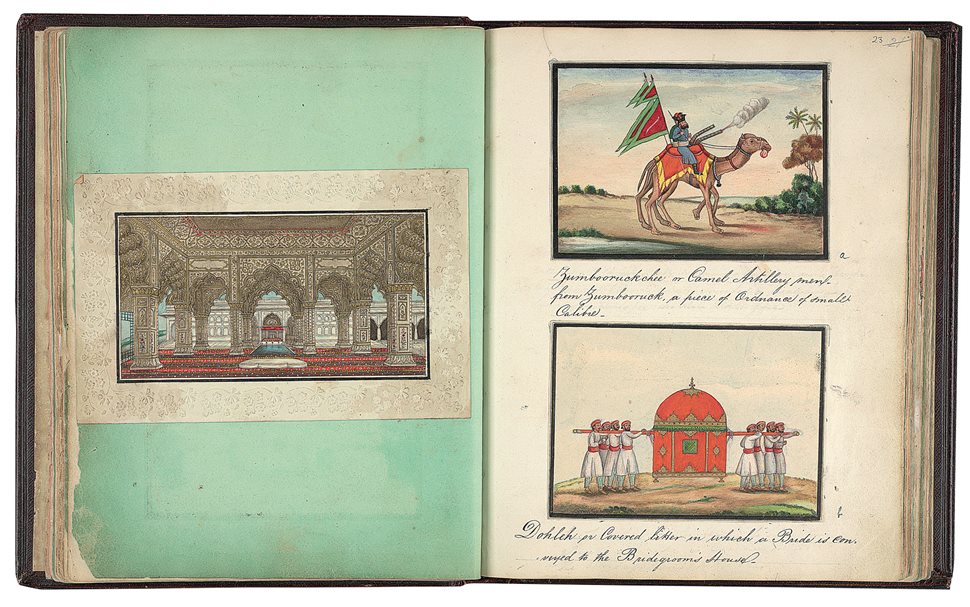 23
a
Zumbooruckchee or Camel Artillery men.
from Zumbooruck, a piece of Ordnance of small
Calibre.
b
Dohleh or Covered litter in which a Bride is con-
-veyed to the Bridegroom's House.